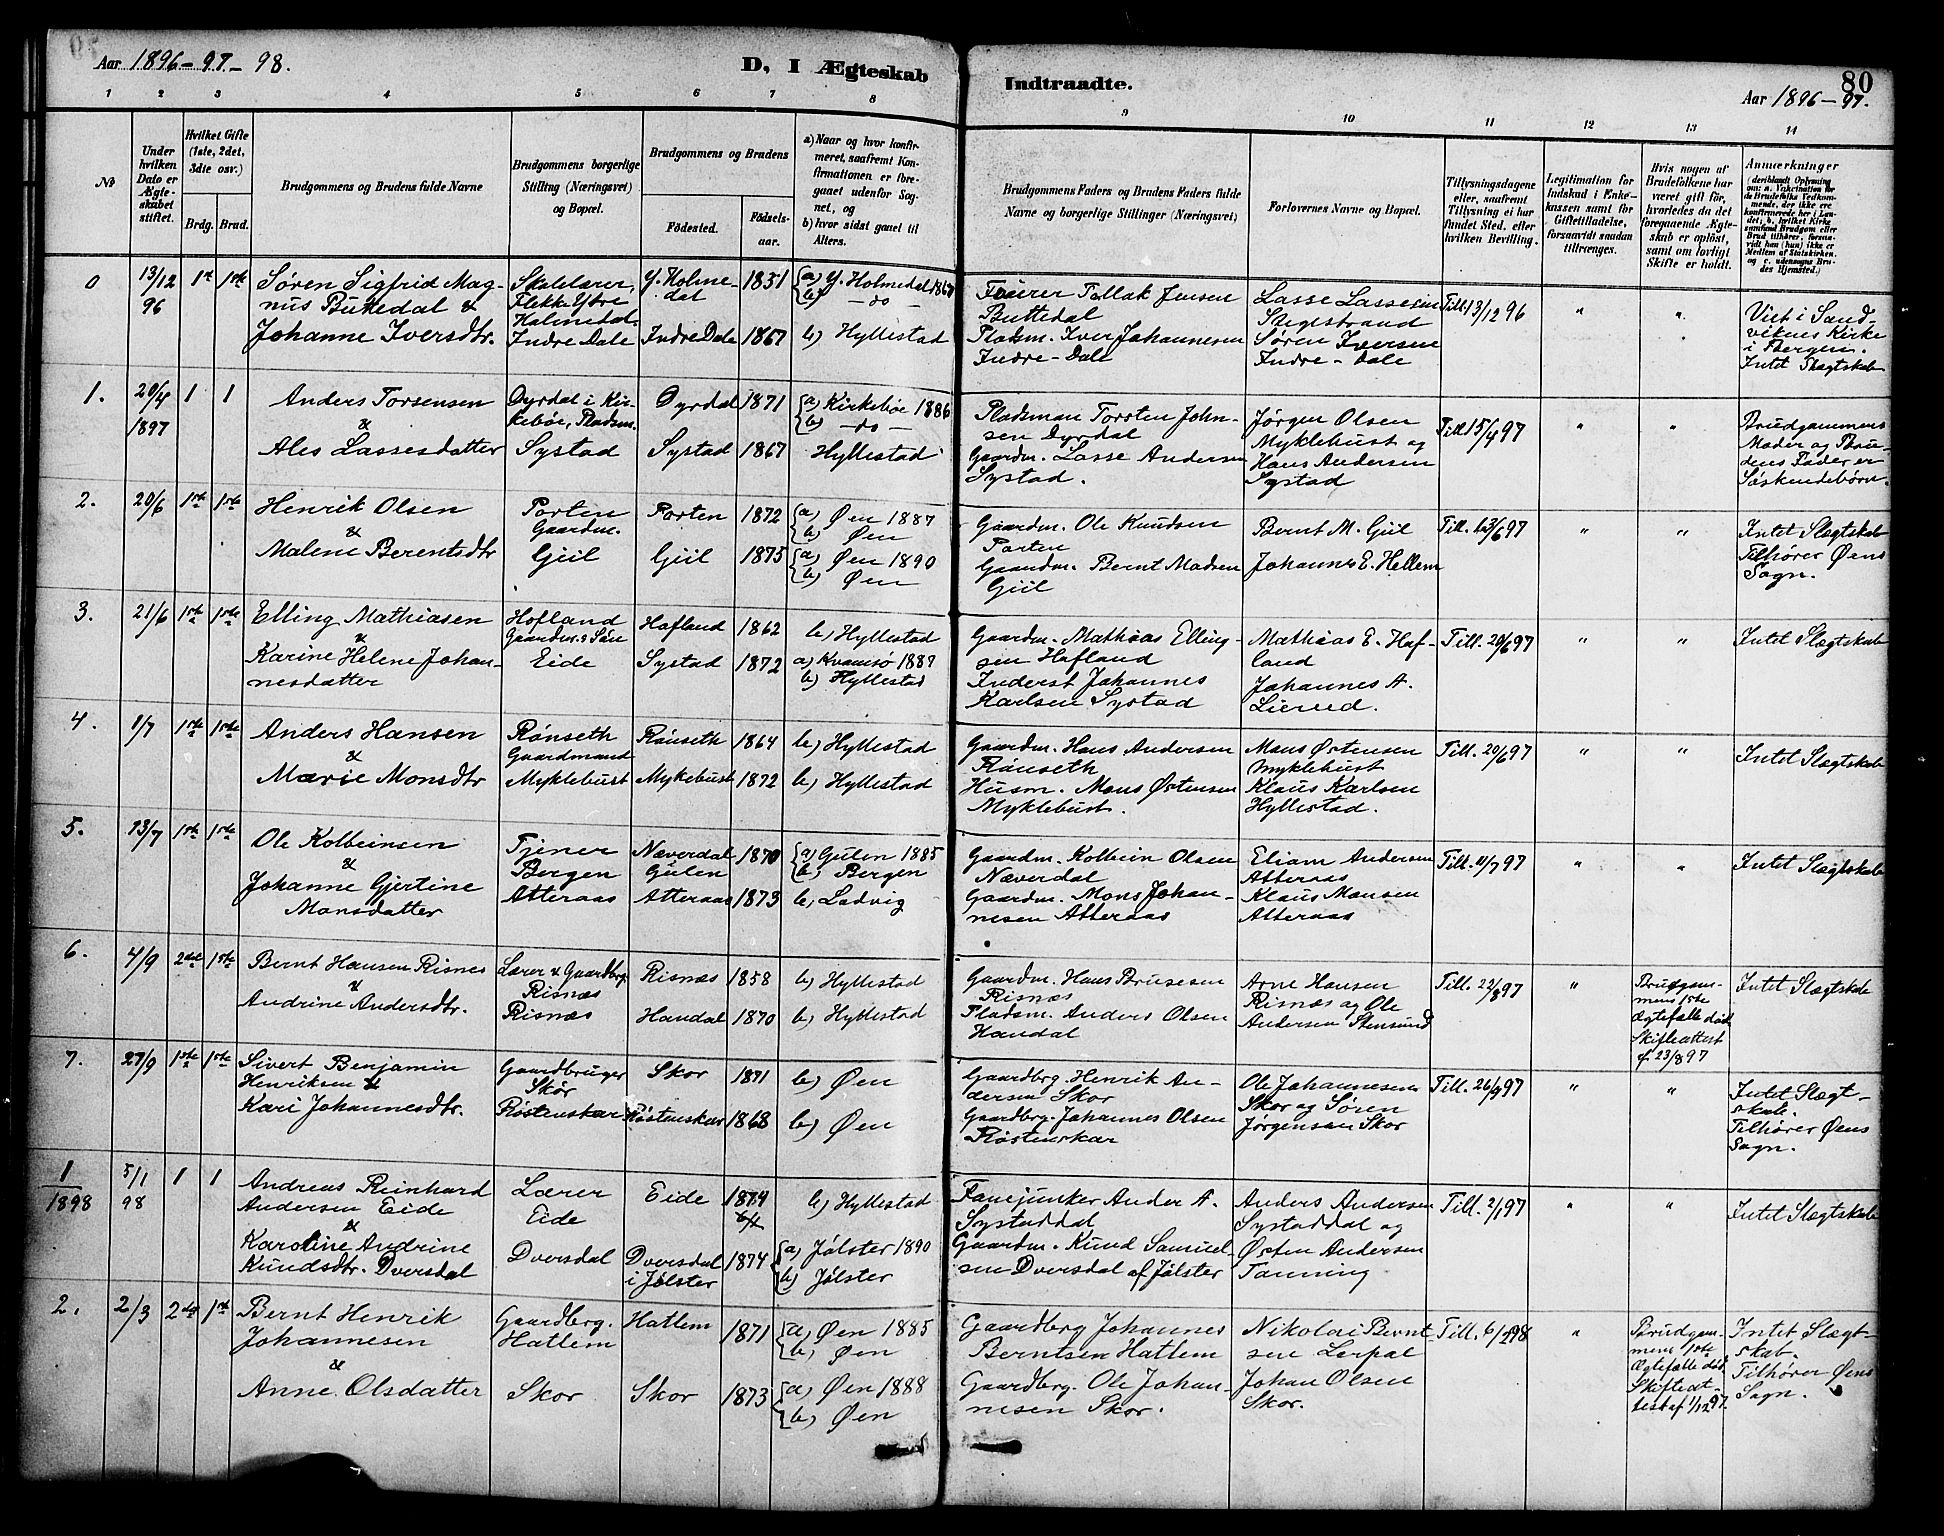 Aar 1896-97-98.
D, I Ægteskab
Indtraadte.
80
Aar 1896-97.
1 2 3 4 5 6 7 8 9 10 11 12 13 14
No
Under hvilken Dato er Ægteskabet stiftet.
Hvilket Gifte (1ste, 2det, 3die osv.)
Brdg. Brud.
Brudgommens og Brudens fulde Navne
Brudgommens borgerlige Stilling (Næringsvei) og Bopæl.
Brudgommens og Brudens
Fødested.
Fødselsaar.
a) Naar og hvor konfirmeret, saafremt Konfirmationen er foregaaet udenfor Sognet, og
b) hvor sidst gaaet til Alters.
Brudgommens Faders og Brudens Faders fulde Navne og borgerlige Stillinger (Næringsvei)
Forlovernes Navne og Bopæl.
Tillysningsdagene eller, saafremt Tillysning ei har fundet Sted, efter hvilken Bevilling.
Legitimation for Indskud i Enkekassen samt for Giftetilladelse, forsaavidt saadan tiltrænges.
Hvis nogen af Brudefolkene har været gift før, hvorledes da det foregaaende Ægteskab er opløst, samt om lovligt Skifte er holdt.
Anmærkninger
0 13/12 96 1st 1ste
Søren Sigfrid Magnus Bukedal &
Johanne Iversdtr.
Skolelærer, Flekke Ytre Holmedal.
Indre Dale
Y. Holmedal 1851
Indre Dale 1867
a) Y. Holmedal 1867
b) - do -
b) Hyllestad
Fourer Tollak Jensen Buttedal
Pladsm. Iver Johannesen Indre-Dale
Lasse Lassesen
Søren Iversen Indre-Dale
Till. 13/12 96
Viet i Sandvikens Kirke i Bergen.
Intet Slægtskab
1. 20/4 1897 1 1
Anders Torsensen
&
Ales Lassesdatter
Dyrdal i Kirkebøe, Pladsm.
Systad
Dyrdal 1871
Systad 1867
a) Kirkebøe 1886
b) - do -
Hyllestad
Pladsman Torsten Johnsen Dyrdal
Gaardm. Lasse Andersen Systad.
Jørgen Olsen Myklebust og
Hans Andersen Systad
Till. 15/4 97
Brudgommens Moder og Brudens Fader er Søskendebørn.
2. 20/6 1ste 1ste
Henrik Olsen
&
Malene Berentsdtr
Porten Gaardm.
Giil
Porten 1872
Giil 1875
a) Øen 1887
b) Øen
a) Øen 1890
b) Øen
Gaardm. Ole Knudsen Porten
Gaardm. Bernt Madsen Giil
Bernt M. Giil
Johannes E. Hellem
Till. 13/6 97
Intet Slægtskab
Tilhører Øens Sogn.
3. 21/6 1ste 1ste
Elling Mathiasen
&
Karine Helene Johannesdatter
Hofland
Gaardm.s Søn
Eide
Hofland 1862
Systad 1872
b) Hyllestad
a) Kvamsø 1887
b) Hyllestad
Gaardm. Mathias Ellingsen Hafland
Inderst Johannes Karlsen Systad
Mathias E. Hafland
Johannes A.
Till. 20/6 97
Intet Slægtskab
4. 1/7 1ste 1ste
Anders Hansen
&
Marie Monsdtr
Rønseth
Gaardmand
Myklebust
Rønseth 1864
Mykebust 1872
b) Hyllestad
b) Hyllestad
Gaardm. Hans Andersen Rønseth
Husm. Mons Østensen Myklebust.
Mons Østensen Myklebust
Klaus Karlsen Hyllestad.
Till. 20/6 97
Intet Slægtskab
5. 13/7 1ste 1ste
Ole Kolbeinsen
&
Johanne Gjertine Monsdatter
Tjener Bergen
Atteraas
Næverdal Gulen 1870
Atteraas 1873
a) Gulen 1885
b) Bergen
b) Ladvig
Gaardm. Kolbein Olsen Næverdal
Gaardm. Mons Johannesen Atteraas
Eliam Andersen Atteraas
Klaus Monsen Atteraas
Till. 11/7 97
Intet Slægtskab
6. 4/9 2det 1ste
Bernt Hansen Risnes
&
Andrine Andersdtr.
Lærer & Gaardbrg. Risnæs
Risnæs
Risnæs 1858
Handal 1870
b) Hyllestad
b) Hyllestad
Gaardm. Hans Brusesen Risnæs
Pladsm. Anders Olsen Handal
Arne Hansen Risnæs og Ole Andersen Stensund
Till. 22/8 97
Brudgommens 1ste Ægtefælle død
Skifteattest af 23/8 97
Intet Slægtskab
7. 27/9 1ste 1ste
Sivert Benjamin Henriksen &
Kari Johannesdtr.
Gaardbruger Skor
Røstenskar
Skor 1871
Røstenskar 1868
b) Øen
b) Øen
Gaardbrg. Henrik Andersen Skor
Gaardbrg. Johannes Olsen Røstenskar
Ole Johannesen Skor og Søren Jørgensen Skor
Till. 26/9 97
Intet Slægtskab.
Tilhører Øens Sogn.
1/1898 5/1 98 1 1
Andreas Reinhard Andersen Eide
&
Karoline Andrine Knudsdtr. Dversdal
Lærer Eide
Dversdal
Eide 1874
Dversdal i Jølster 1874
b) Hyllestad
a) Jølster 1890
b) Jølster
Fanejunker Ander A. Systaddal
Gaardm. Knud Samuelsen Dversdal af Jølster
Anders Andersen Systaddal og
Østen Andersen Tanning
Till. 2/1 97
Intet Slægtskab
2. 2/3 2det 1ste
Bernt Henrik Johannesen
&
Anne Olsdatter
Gaardberg. Hatlem
Skor
Hatlem 1871
Skor 1873
a) Øen 1885
b) Øen
a) Øen 1888
b) Øen
Gaardberg Johannes Berntsen Hatlem
Gaardberg. Ole Johannesen Skor.
Nikolai Berntsen Lerpal
Johan Olsen Skor.
Till. 6/2 98
Brudgommens 1ste Ægtefælle død
Skifteattest af 1/12 97.
Intet Slægtskab.
Tilhører Øens Sogn.